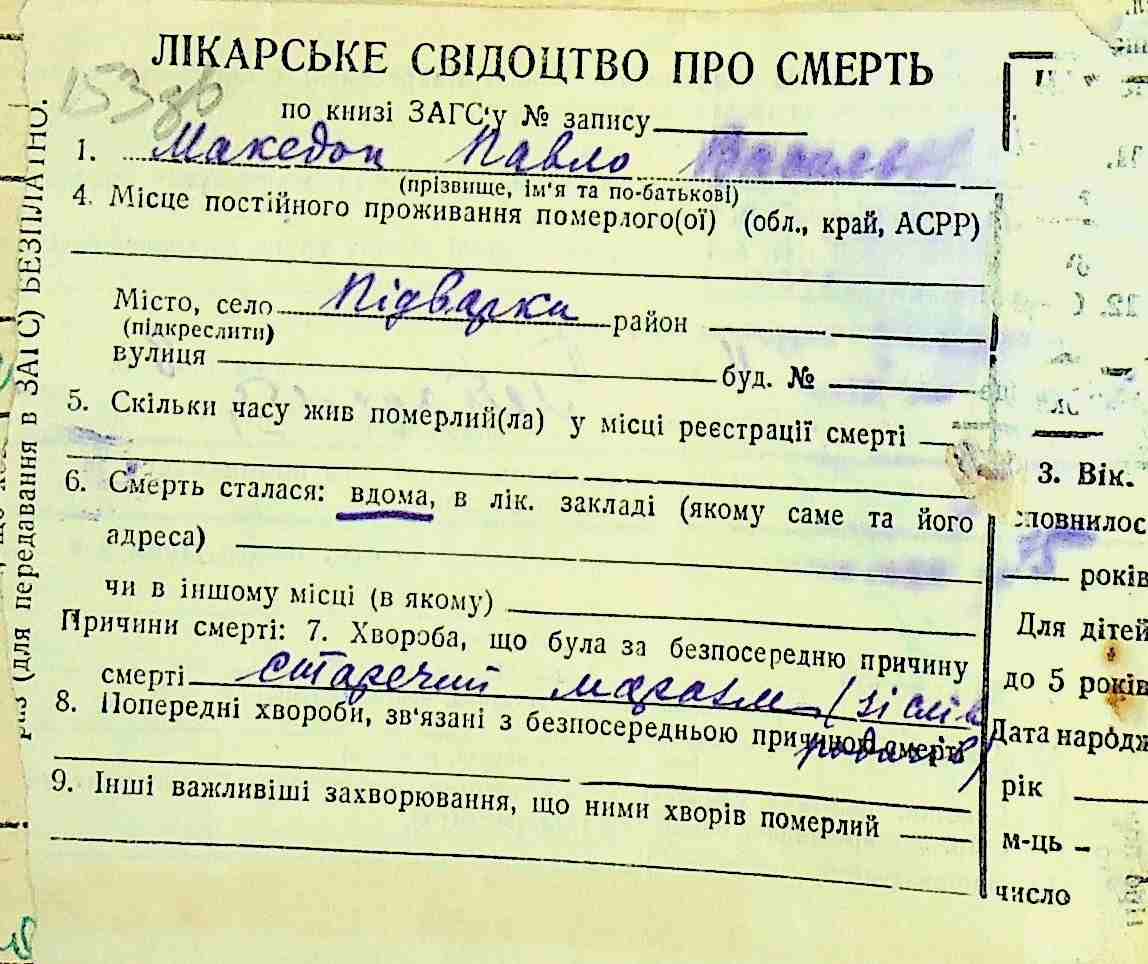 ЛІКАРСЬКЕ СВІДОЦТВО ПРО СМЕРТЬ
по книзі ЗАГС'у № запису
1. Македон Павло
(прізвище, ім'я та по-батькові)
4. Місце постійного проживання померлого(ої) (обл., край, АСРР)
Місто, село Підварки район
(підкреслити)
вулиця буд. №
5. Скільки часу жив померлий(ла) у місці реєстрації смерті
6. Смерть сталася: вдома, в лік. закладі (якому саме та його
адреса)
чи в іншому місці (в якому)
Причини смерті: 7. Хвороба, що була за безпосередню причину
смерті старечий маразм (зі слів
родичів)
8. Попередні хвороби, зв'язані з безпосередньою причиною смерті
9. Інші важливіші захворювання, що ними хворів померлий
3. Вік.
років
Для дітей
до 5 років
Дата народж
рік
м-ць
число
(для передавання в ЗАГС) БЕЗПЛАТНО.